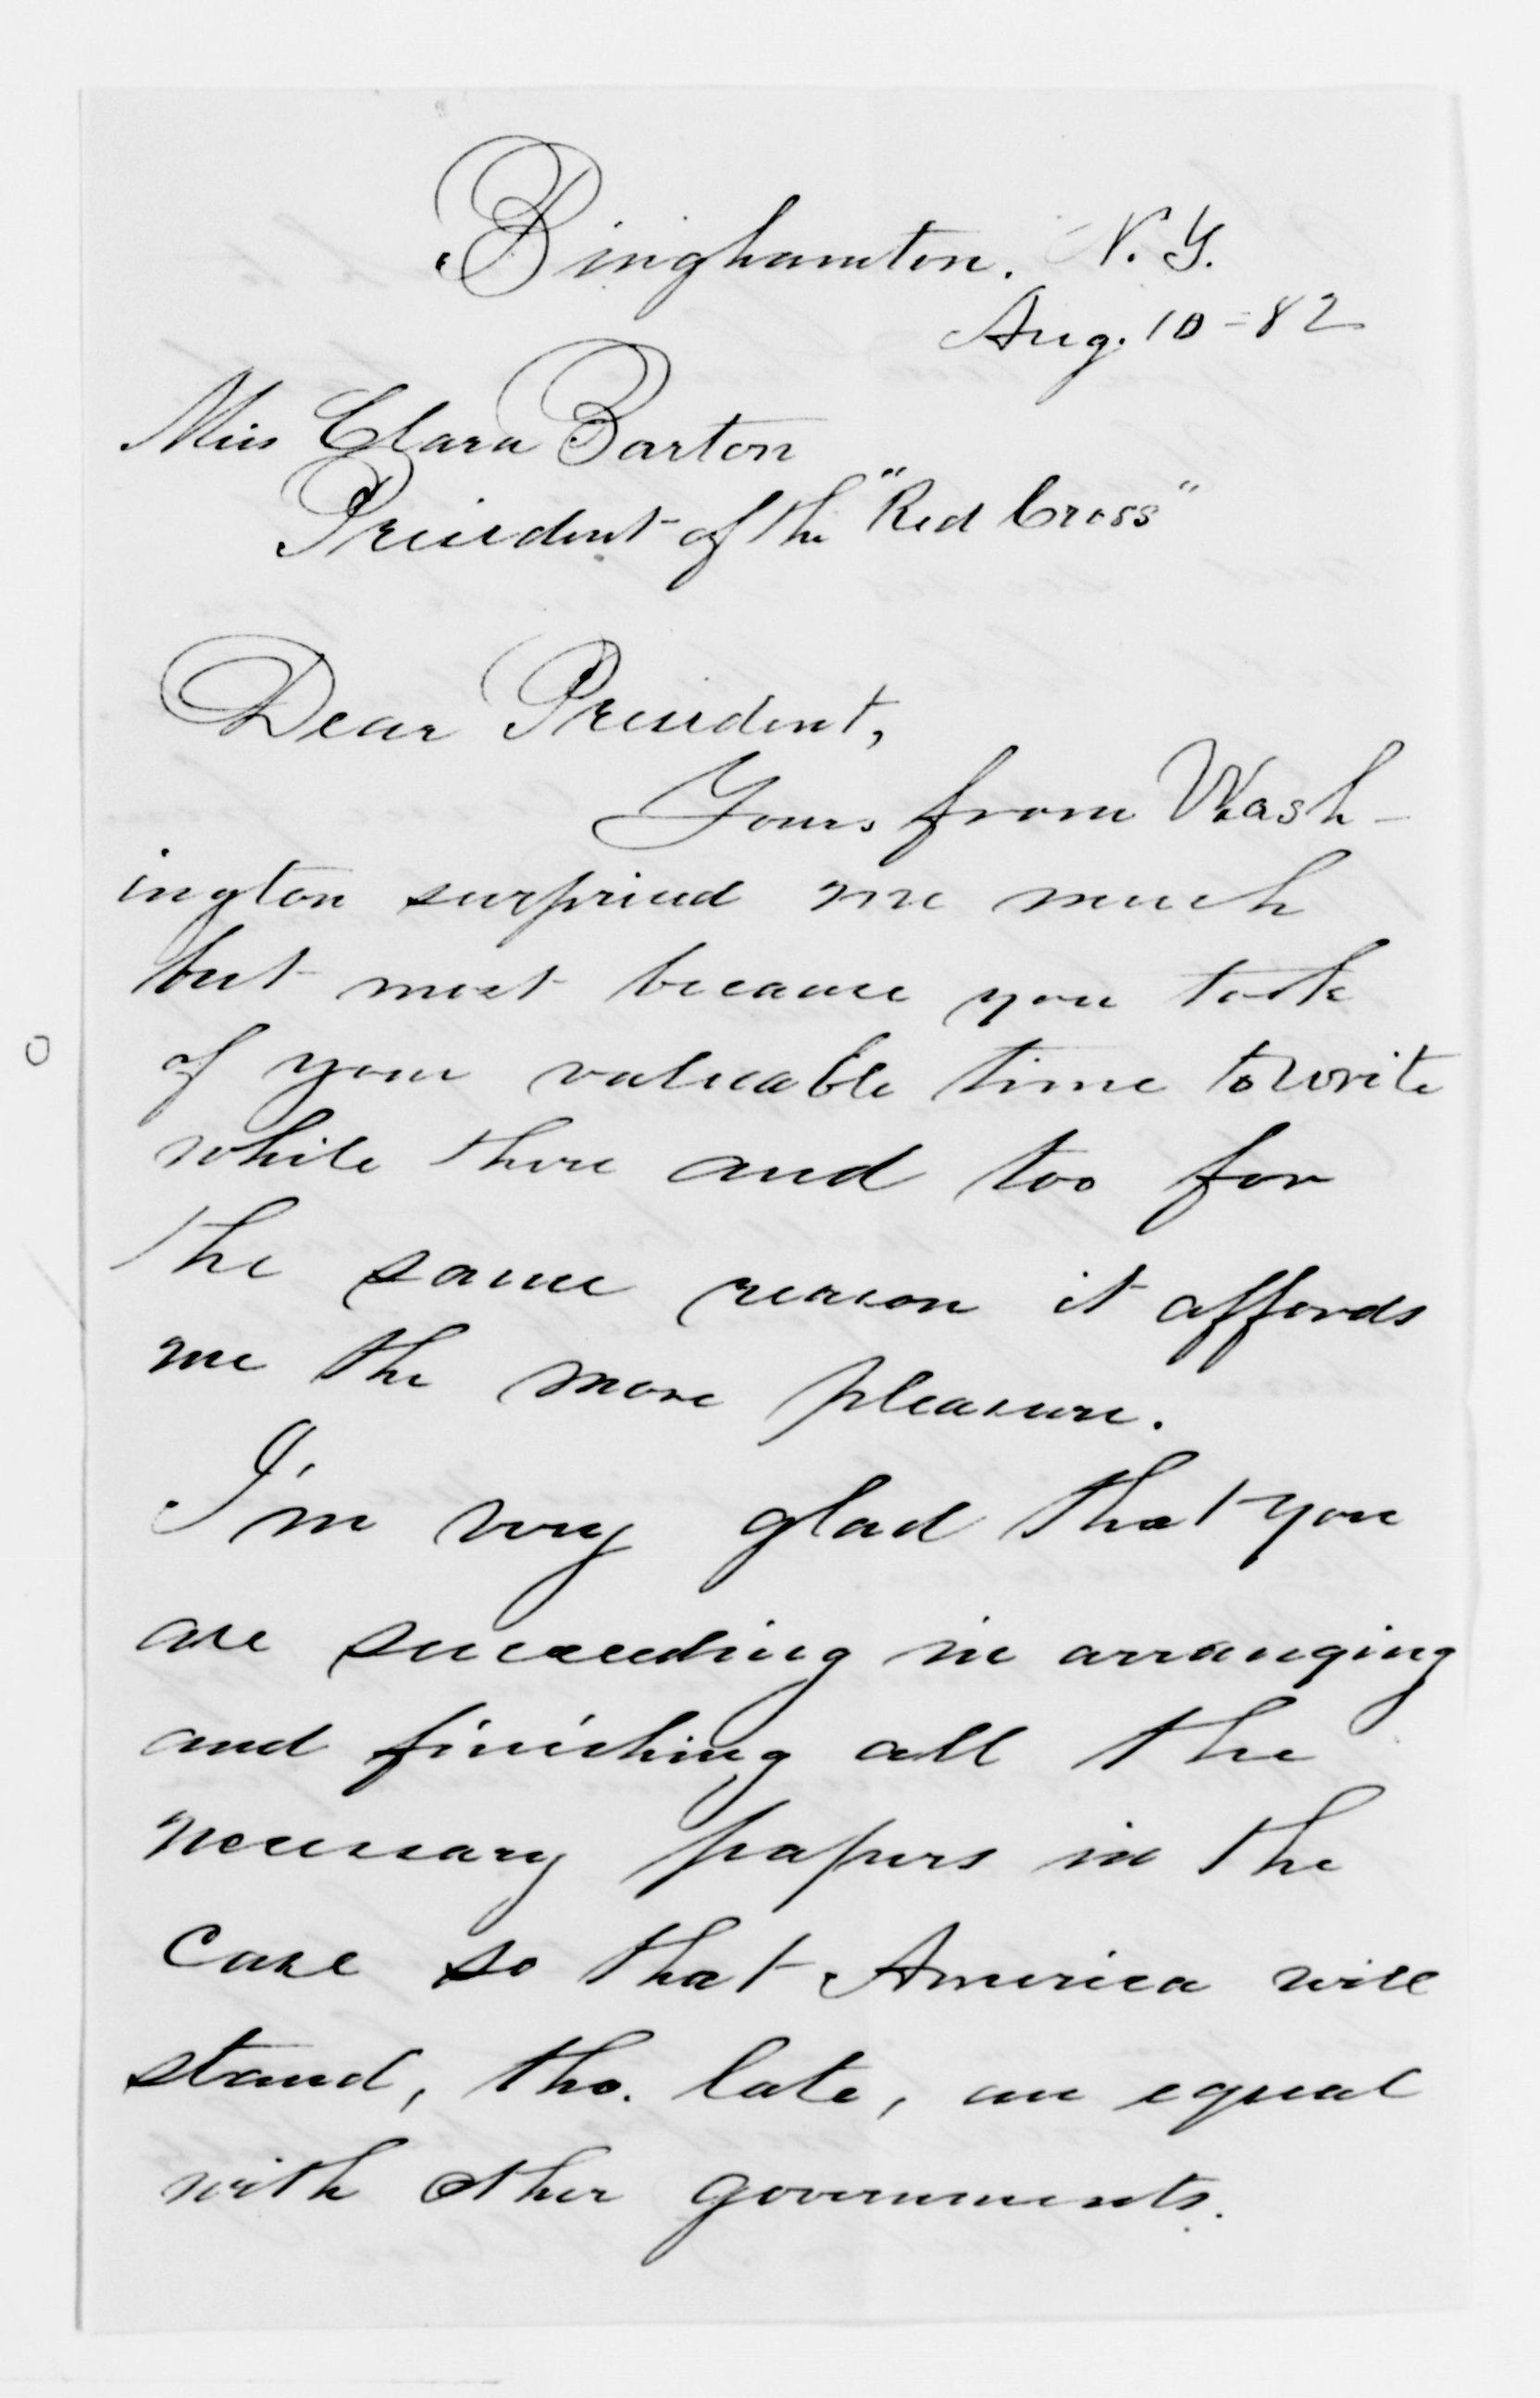 Binghamton. N.Y.
Aug. 10-82
Miss Clara Barton
President of the "Red Cross"
Dear President,
Yours from Wash-
ington surprised me much
but most because you took
of your valuable time to write
while there and too for
the same reason it affords
me the more pleasure.
I'm very glad that you
are succeeding in arranging
and finishing all the
necessary papers in the
case so that America will
stand, tho. late, an equal
with other governments.